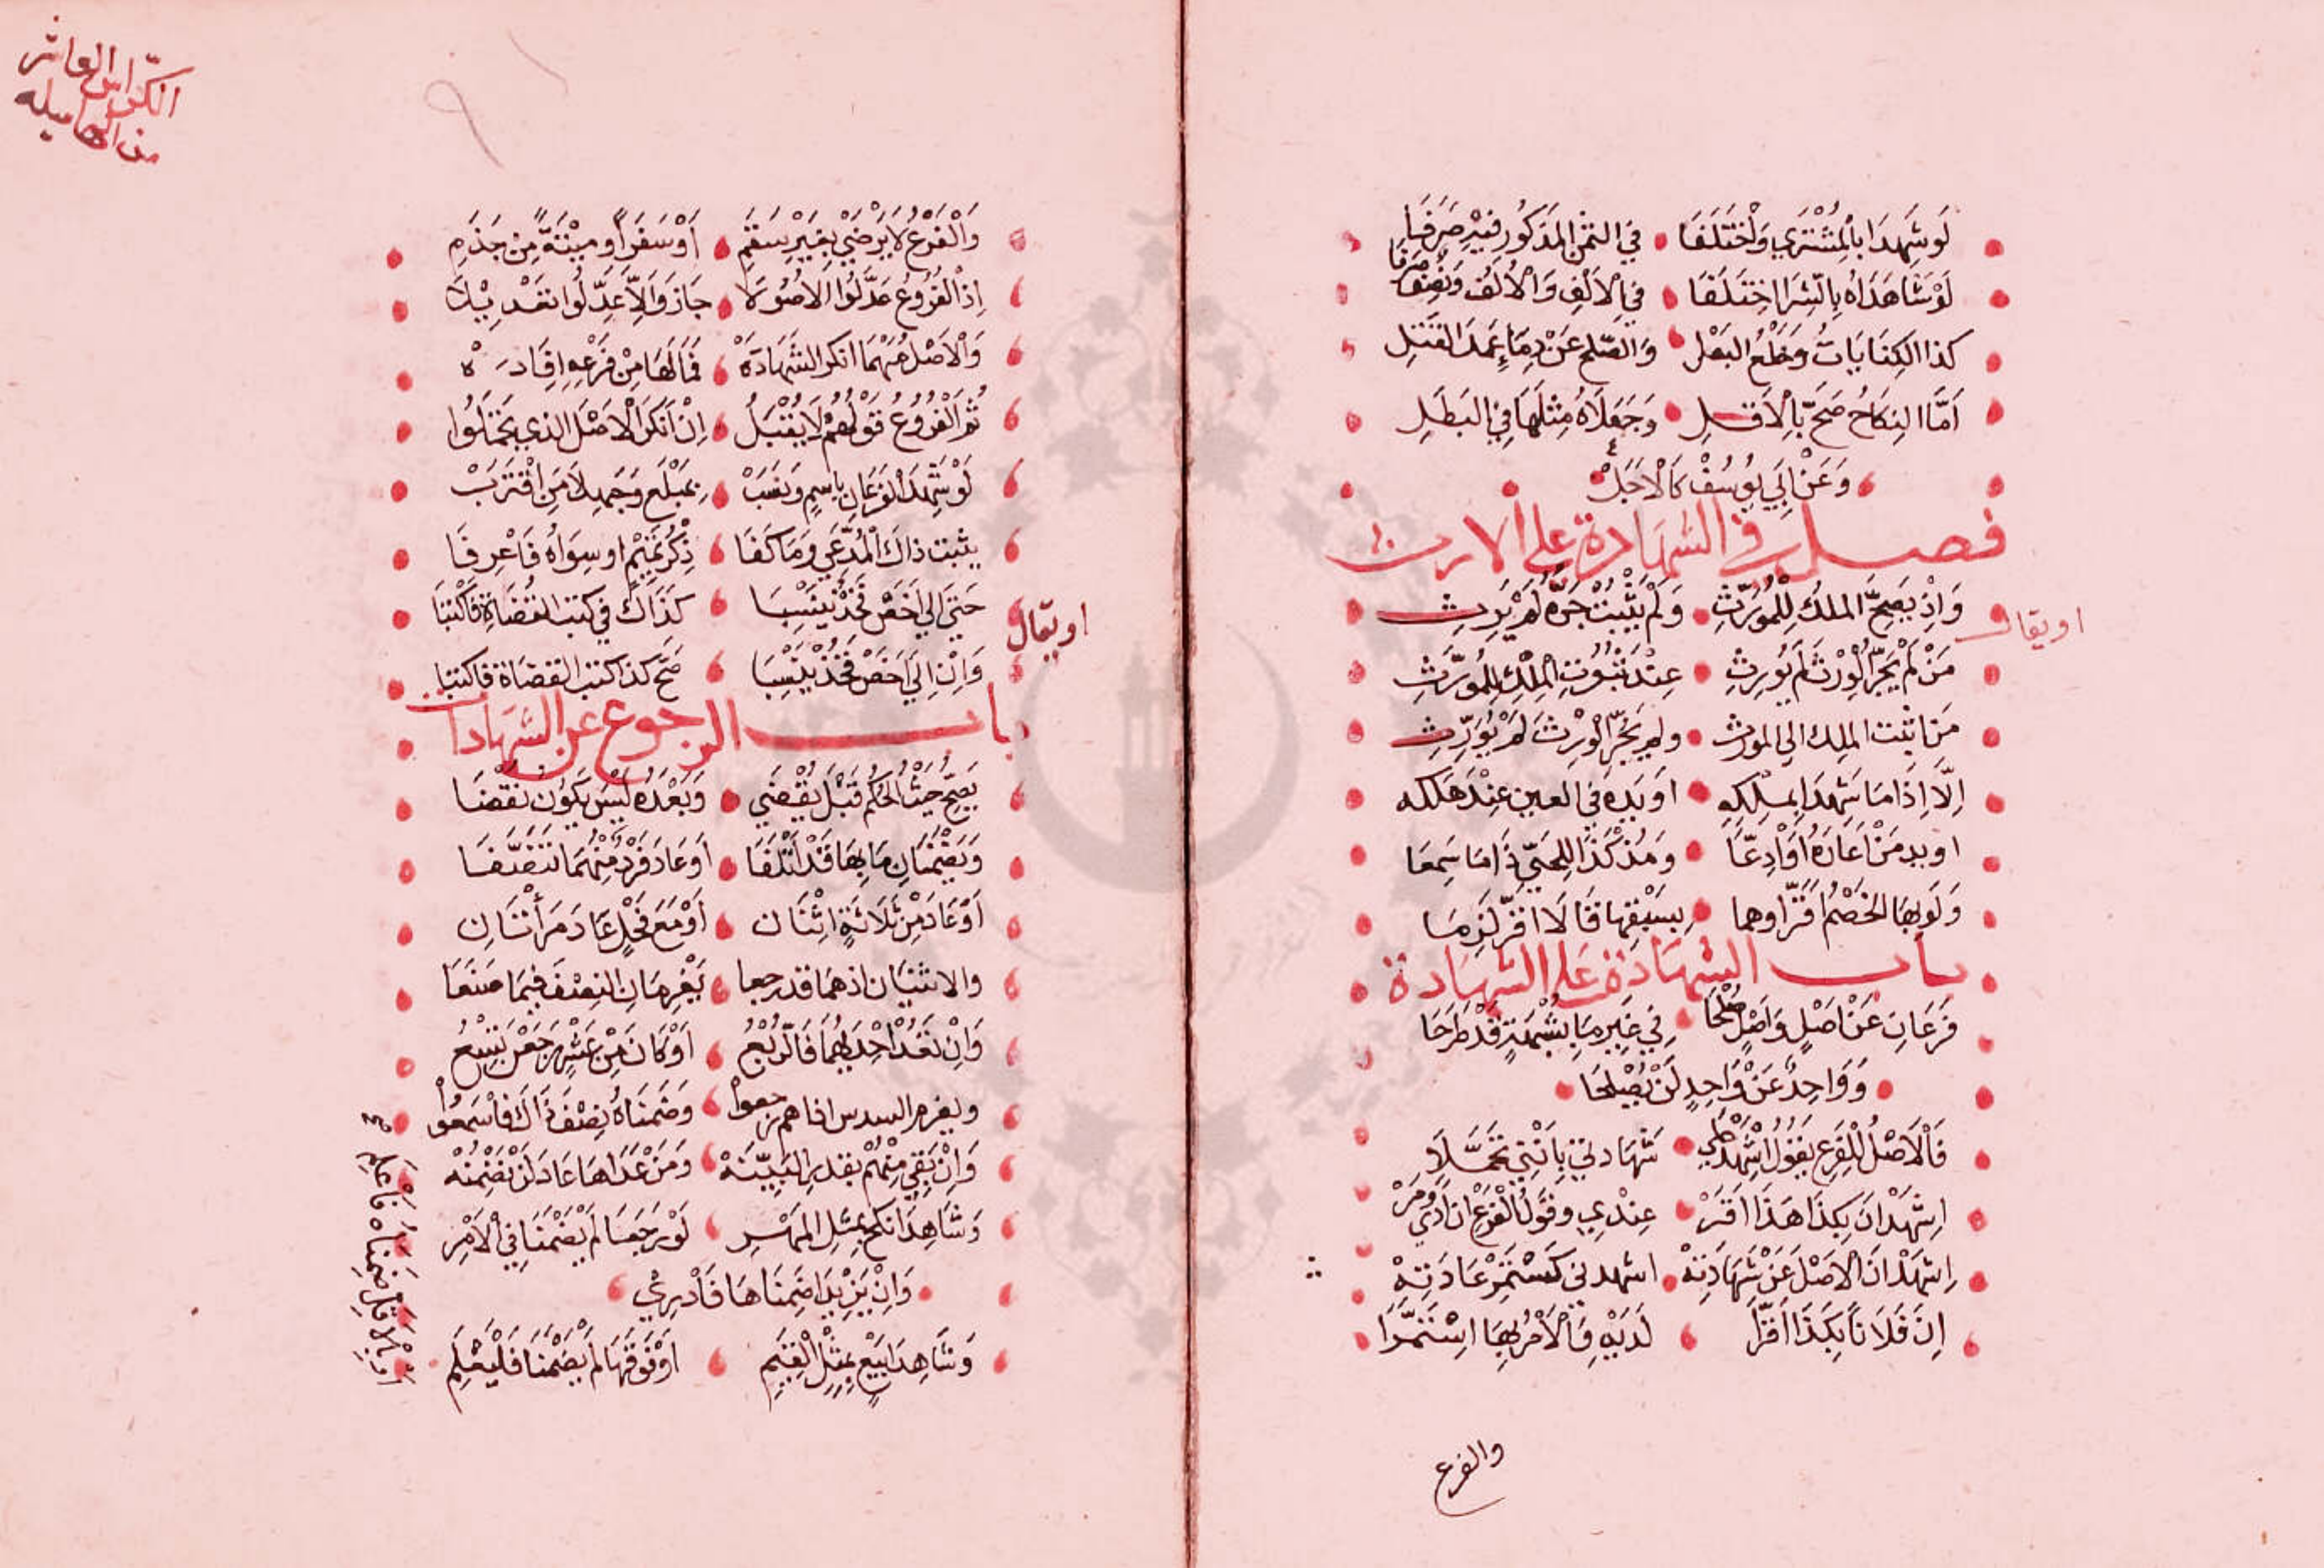 لَوْ شَهِدَا بِالْمُشْتَرِي وَاخْتَلَفَا في الثمن المذكور فِيهِ صَرَفَا
لَوْ شَاهَدَاهُ بِالشِّرَا اخْتَلَفَا في الْأَلْفِ وَالْأَلْفِ وَنِصْفٍ صرفا
كذا الكِتَابَاتُ وَخَلْعُ البَعْلِ وَالصّلح عَنْ دِمَاءِ عَمْدَ القَتْلِ
أَمَّا النِكَاحُ صَحَّ بِالْأَقَلِ وَجَعَلَاهُ مِثْلَهَا فِي البَطَلِ
وَعَنْ أَبِي يُوسُفْ كَالْأَجَلْ
فصل في الشهادة على الارث
وَإِذْ يَصِحُّ الملكُ لِلْمُوَرِّثِ وَلَمْ يَثْبُتْ جَرُّهُ لَمْ يَرِثِ
او يقال
مَنْ لَمْ يَجُرَّ الْوِرْثَ لَمْ يُورِثِ عِنْدَ ثُبُوتِ الْمِلْكِ لِلْمُوَرِّثِ
مَن اثبت الملك الى المورث ولم يَجُرَّ الْوِرْثَ لَمْ يُوَرِّثِ
إِلَّا إِذَا مَا شَهِدَا بِمِلْكِهِ اوَ يَدِهِ في العين عِنْدَ هَلْكه
او يد مَنْ أَعَارَهُ أَوْ أَوْدَعَا وَمُذْ كَذَا لِلْحَيِّ ذَا مَا سَمِعَا
وَلَوْ بِهَا الخَصْمُ أَقَرَّ اوهما بِسَبْقِهَا قَالَا اقَرَّ لَزِمَا
باب الشهادة على الشهادة
فَرْعَانِ عَنْ أَصْلٍ وَأَصْلٍ صُلْحَا فِي غَيْرِ مَا بِشُبْهَةٍ قَدْ طَرَحَا
وَوَاحِدٌ عَنْ وَاحِدٍ لَنْ يُصْلِحَا
فَالْأَصْلُ لِلْفَرْعِ يَقُولُ اشْهَدْ عَلَى شَهَادتي بِأَنَّنِي تَحَمَّلَا
اِشْهَدْ أَنَ بِكَذَا هَذَا أَقَرْ عِنْدِي وقَوْلُ الْفَرْعِ ان أَدَّى وَمَرْ
اِشْهَدْ أَنَ الْأَصْلَ عَنْ شَهَادَتِهْ اشهدني كَمُسْتَمِرْ عَادَتِهْ
إِنَ فُلَانًا بِكَذَا أَقَرَّا لَدَيْهِ وَالْأَمْرُ بِهَا اسْتَمَرَّا
والفرع
الكرّاس العاشر
من الهاميله
وَالْفَرْعُ لَا يُرْضَى بِغَيْرِ سَقَمِ أَوْ سَفَرًا او مِيْتَةً مِن جَذَمِ
إِذْ الْفُرُوعُ عَدَّلُوا الْأُصُولَا جَازَ وَإِلَّا عُدِّلُوا تَعْدِيْلَا
وَالْأَصْلُ مَهْمَا انكر الشَّهَادَةْ فَمَا لَهَا مِنْ فَرْعِهِ إِفَادَهْ
ثُمَّ الْفُرُوعُ قَوْلُهُمْ لَا يُقْبَلُ إِنْ أَنْكَرَ الْأَصْلَ الذي تَحَمَّلُوا
لَوْ شَهِدَ الْفَرْعَانِ بِاسْمٍ وَنَسَبْ بِمَبْلَغٍ وَجَهِلَا مَنِ اقْتَرَبْ
يثبت ذاكَ الْمُدَّعِي وَمَا كَفَا ذِكْرُ تَمِيْمٍ او سِوَاهُ فَاعْرِفَا
حَتَّى إِلَى أَخَصِّ فَخْذٍ يُنْسَبَا كَذَاكَ فِي كُتْبِ الْقُضَاةِ فَاكْتُبَا
او يقال
وَإِنْ إِلَى أَخَصِّ فَخْذٍ يُنْسَبَا صَحَّ كذا كتب القضاة فاكتبا
باب الرجوع عن الشهادات
يَصِحُّ حَيْثُ الْحُكْمُ قَبْلُ يُقْضَى وَبَعْدَهُ لَيْسَ يَكُونُ نَقْضَا
وَيَضْمَنَانِ مَا بِهَا قَدْ أَتْلَفَا أَوْ عَادَ فَرْدٌ مِنْهُمَا تَنَصَّفَا
أَوْ عَادَ مِنْ ثَلَاثَةٍ اثْنَانِ أَوْ مَعَ فَحْلٍ عَادَ مَرْأَتَانِ
والانثيان اذ هُمَا قد رجعا يَغْرِمَانِ النِّصْفَ فِيمَا صَنَعَا
وَإِنْ تَعُدْ إِحْدَاهُمَا فَالرُّبْعُ أَوْ كَانَ مِنْ عَشْرٍ رَجَعْنَ تِسْعُ
ويغرم السدس اذا هم رجعوا وضَمَّنَاهُ نِصْفَ ذَاكَ فَاسْمَعُوا
وَإِنْ بَقِي مِنْهُمْ بقدر البَيِّنَهْ وَمَنْ عَدَاهَا عَادَ لَنْ تُضَمِّنَهْ
وَشَاهِدَا نكح بِمِثْلِ الْمَهْرِ لَوْ رَجَعَا لَمْ يَضْمَنَا فِي الْأَمْرِ
وَإِنْ يَزِيْدَا ضَمِنَاهَا فَادْرِي
وَشَاهِدَا بَيْعٍ بِمِثْلِ الْقِيَمِ أَوْ فَوْقَهَا لَمْ يَضْمَنَا فَلْيُعْلَمِ